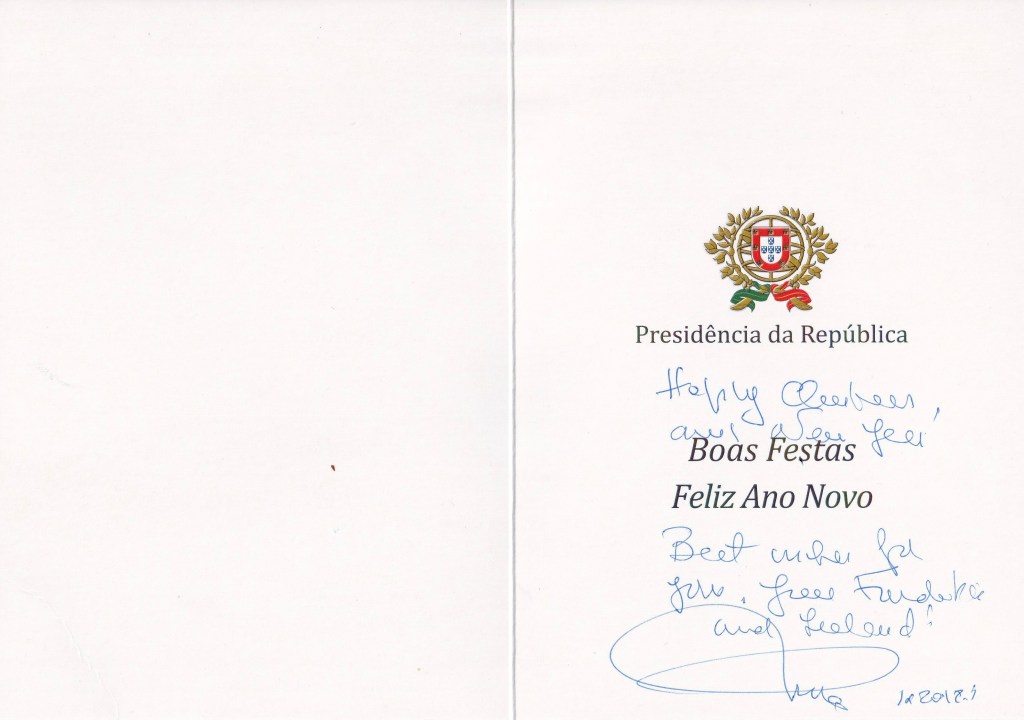 Presidência da República
Happy Christmas,
and New Year
Boas Festas
Feliz Ano Novo
Best wishes for
you, your
and Iceland!